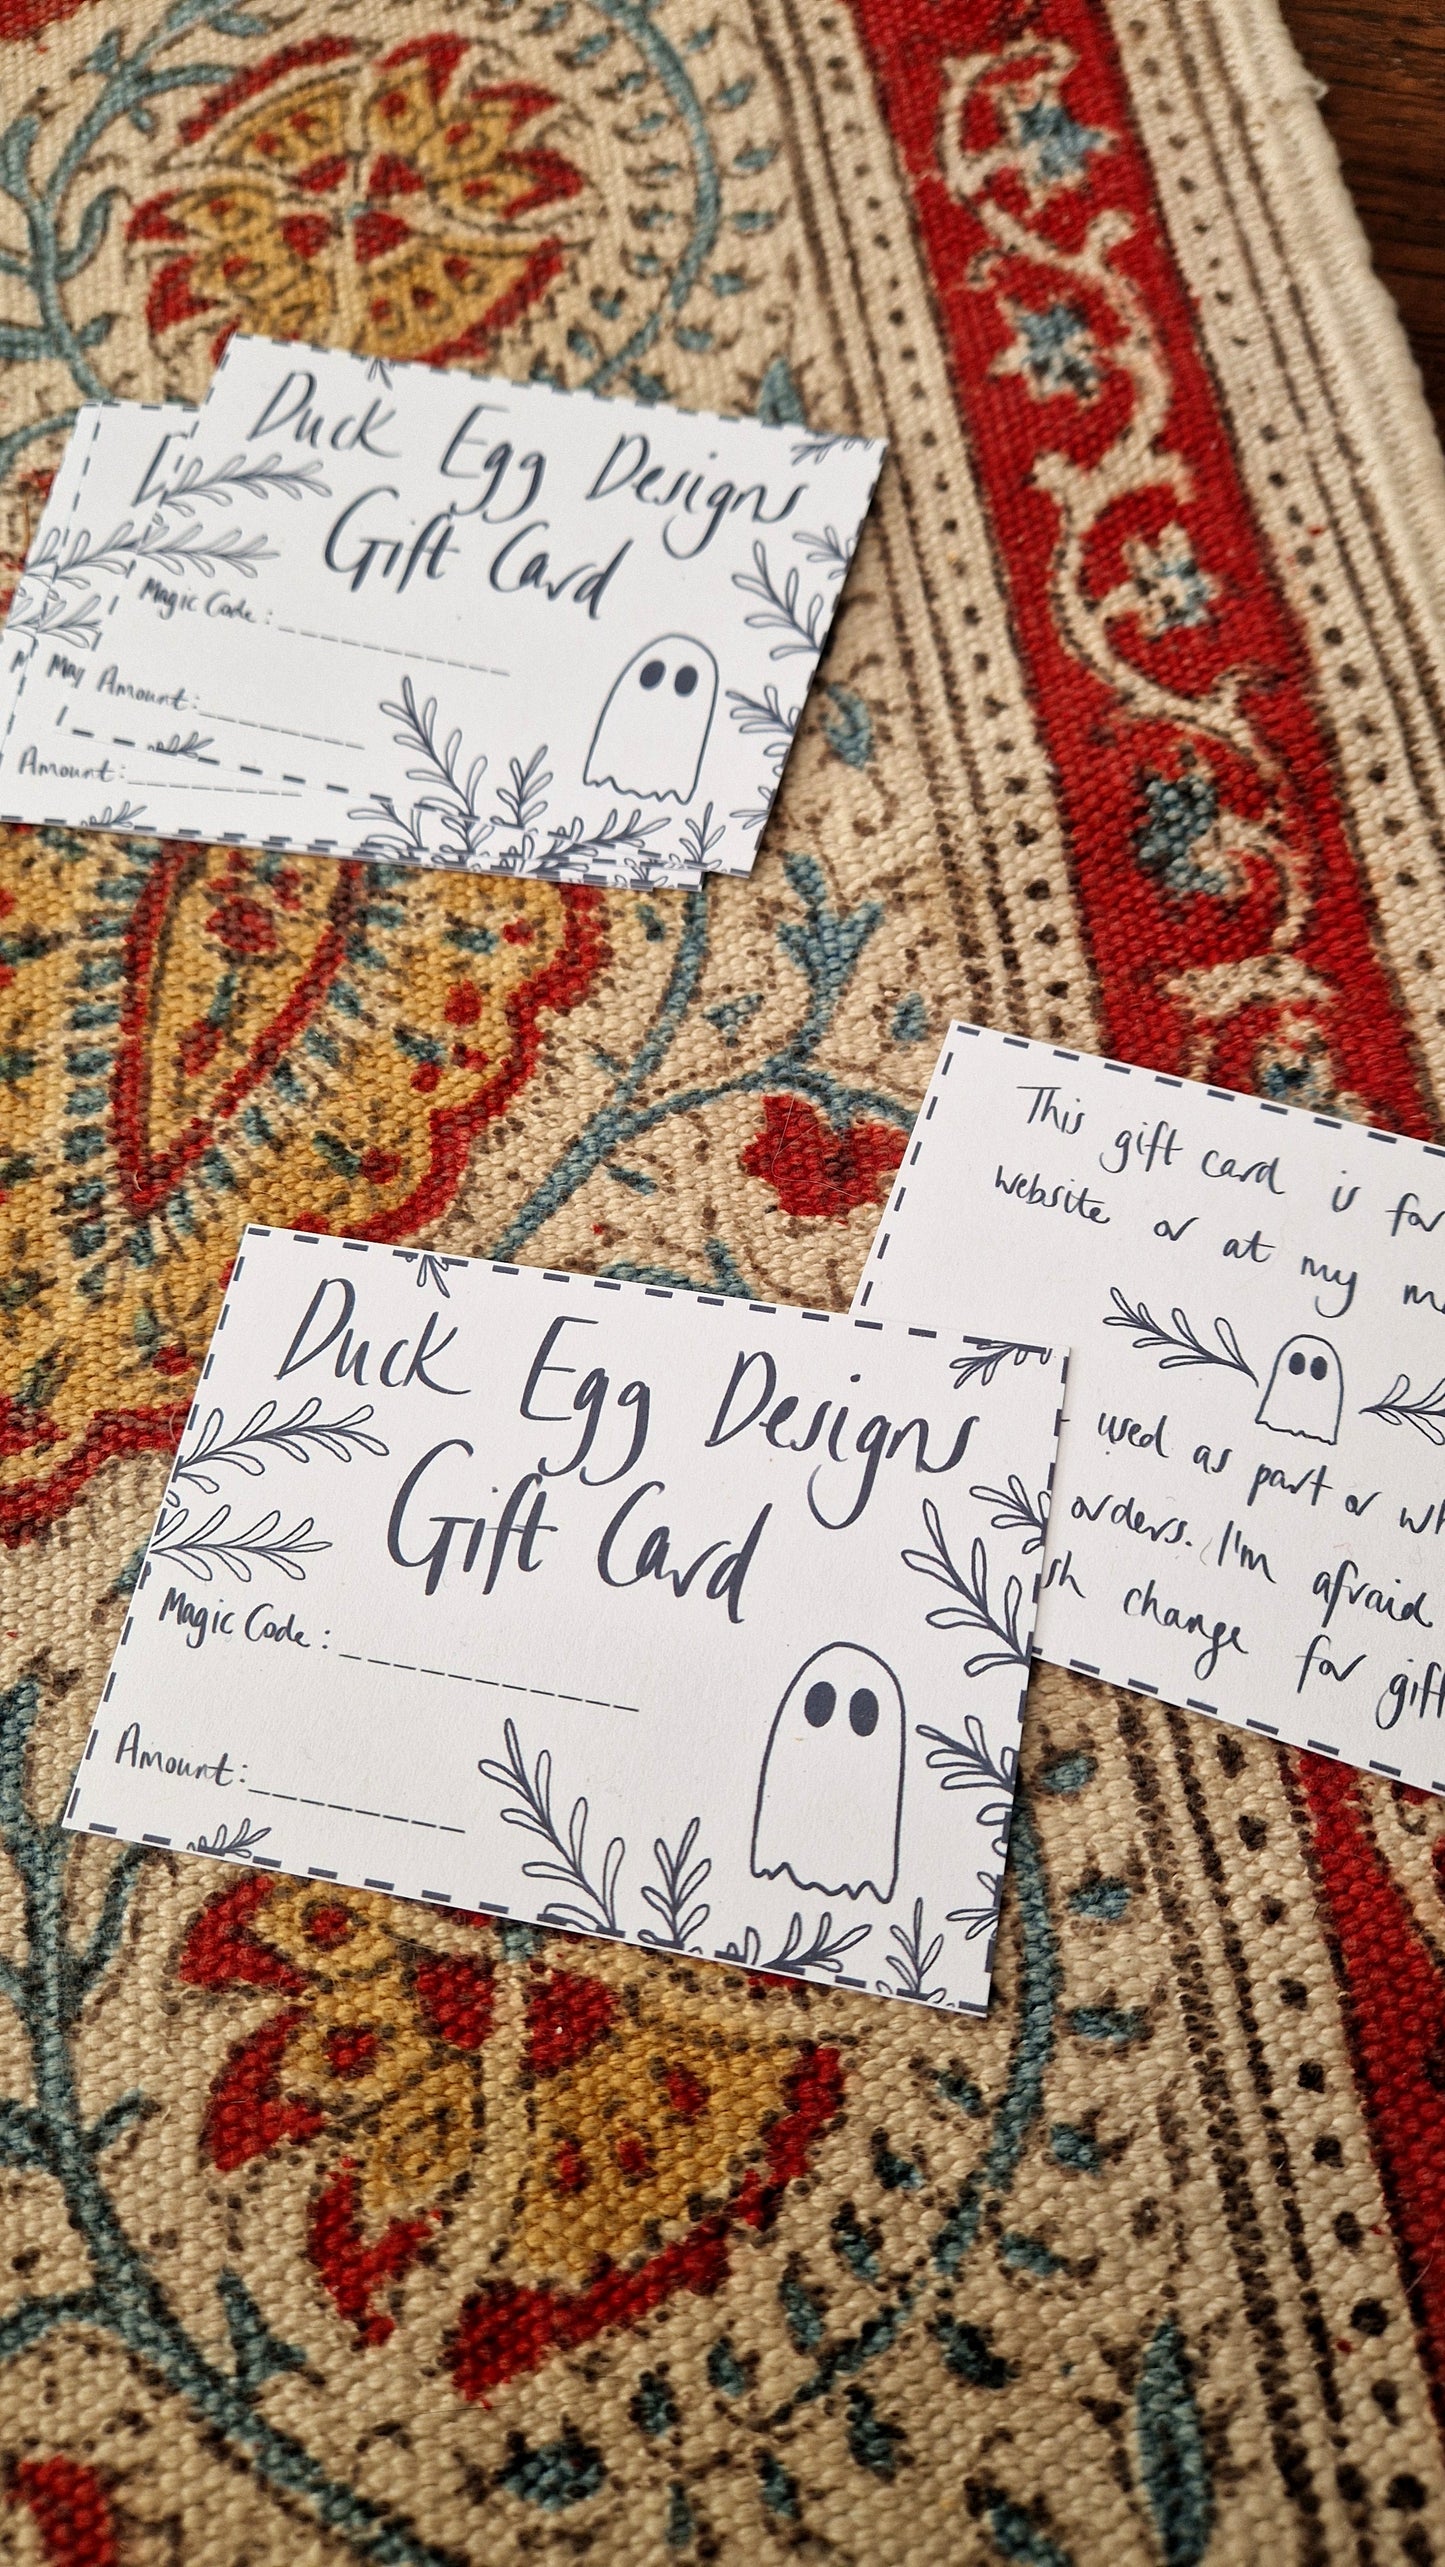 Duck Egg Designs
Gift Card
Magic Code:
May Amount:
Amount:
This gift card is for
website or at my
used as part or
orders. I'm afraid
change for
Duck Egg Designs
Gift Card
Magic Code:
Amount: